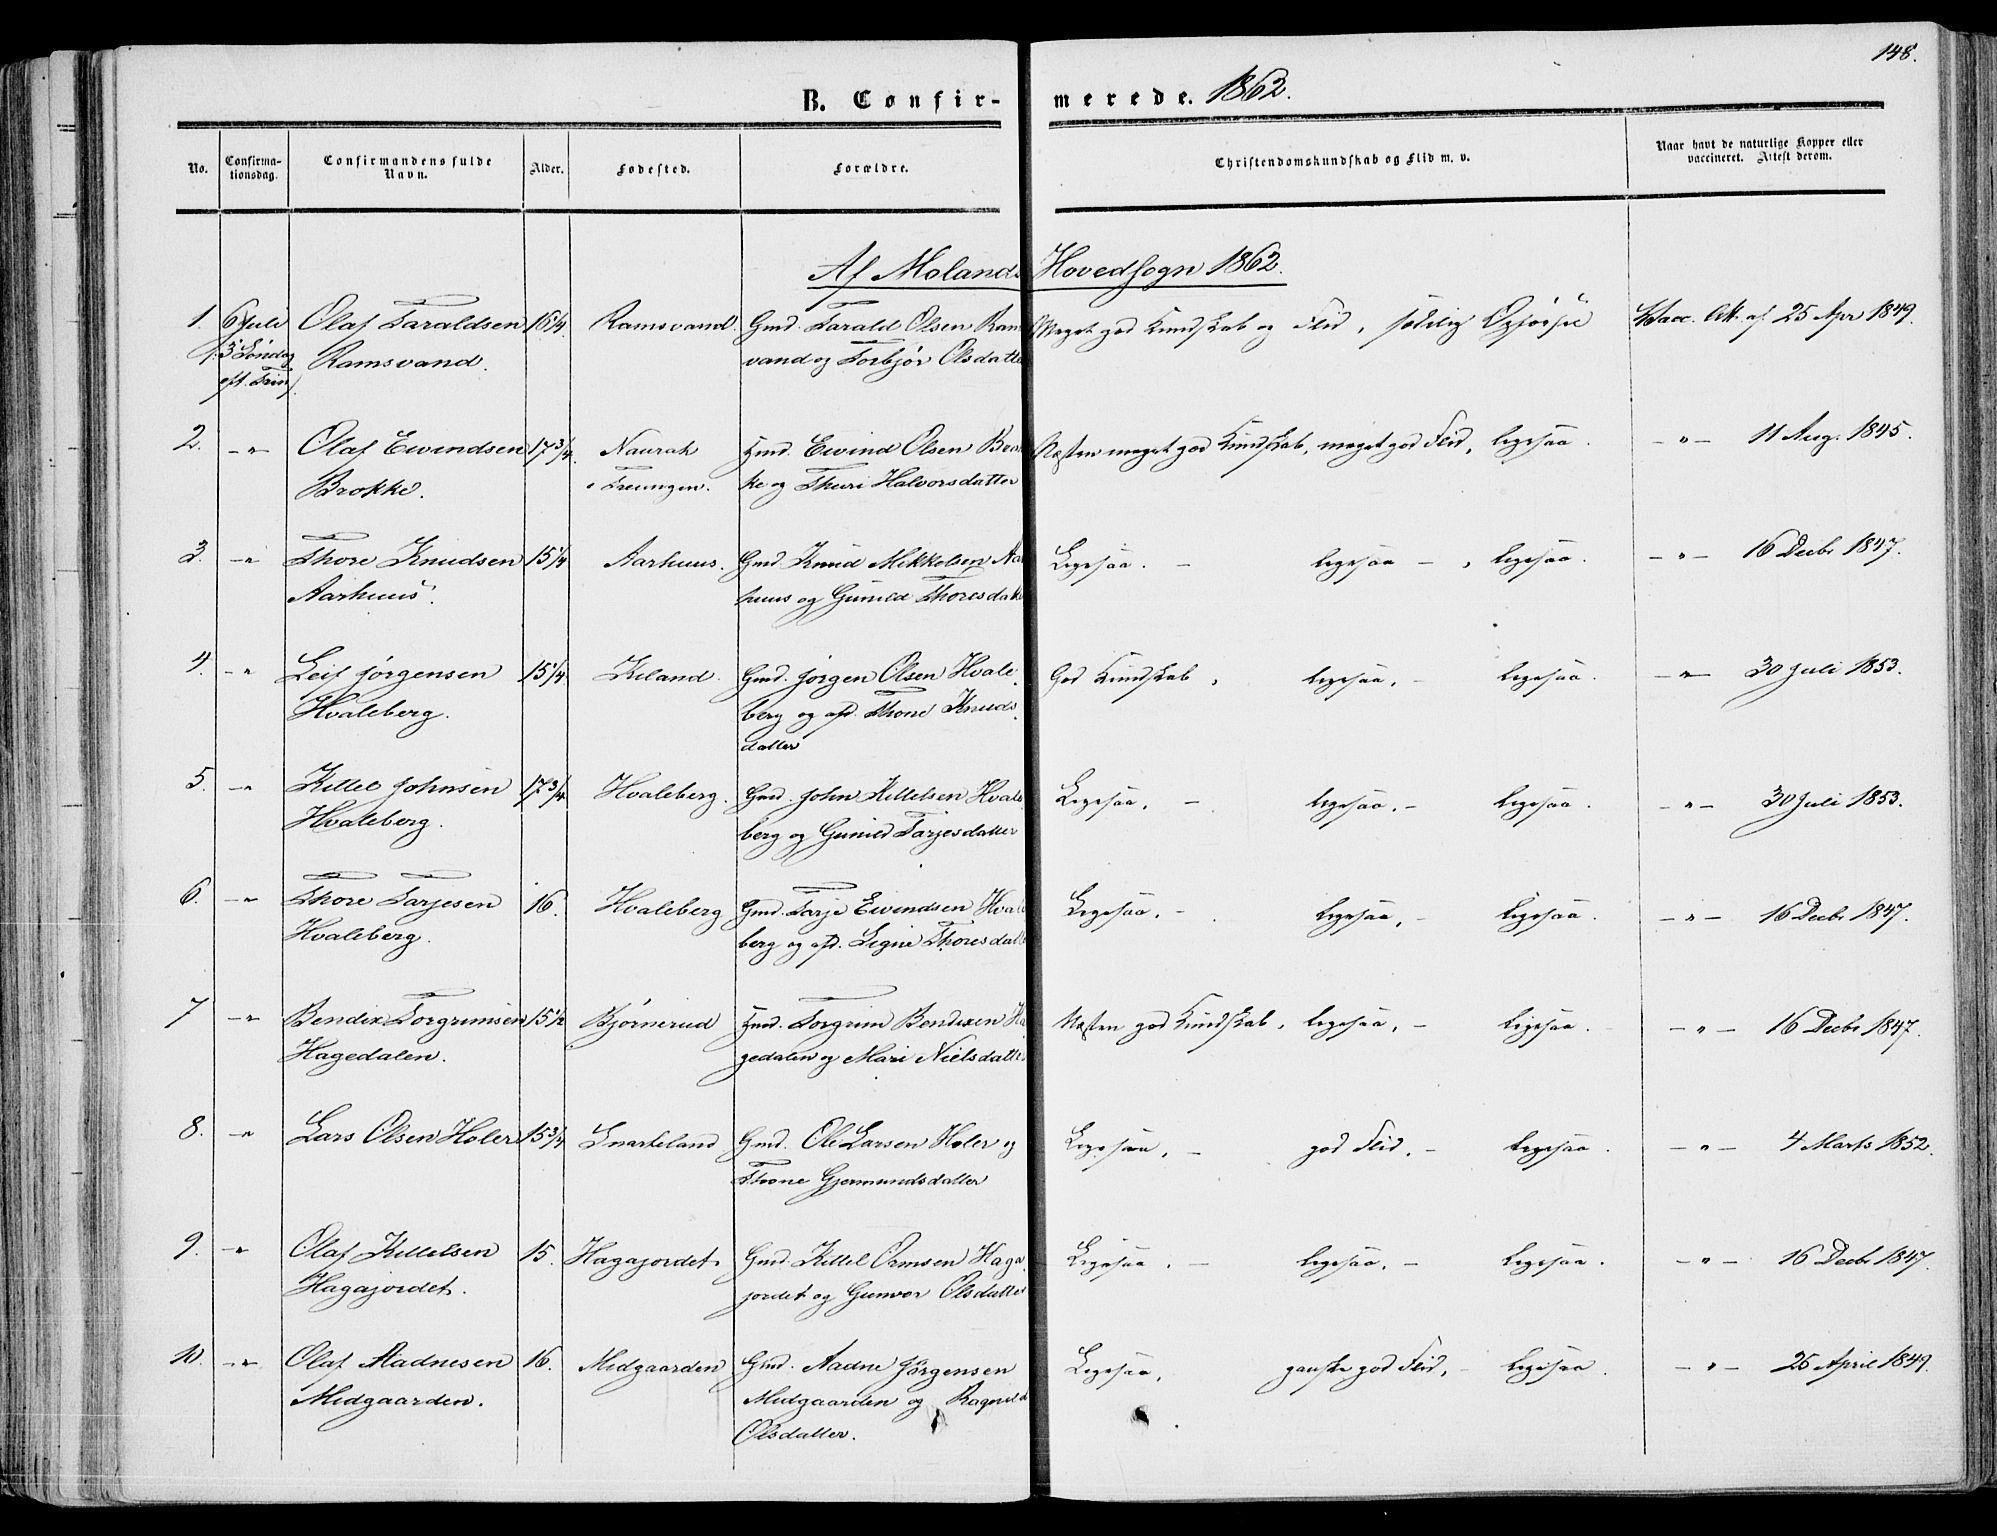 148.
B. Confir- merede. 1862.
No. Confirma-tionsdag. Confirmandens fulde Navn. Alder. Fødested. Forældre. Christendomskundskab og Flid m. v. Naar havt de naturlige Kopper eller vaccineret. Attest derom.
Af Molands Hovedsogn 1862.
1. 6 Juli Olaf Taraldsen 16 1/4. Ramsvand. Gmd. Tarald Olsen Rams Meget god Kundskab og Flid, sædelig Opførsel Vacc. Att. af 25 Apr 1849.
/: 3 Søndag Ramsvand. vand og Torbjør Olsdatter
eft. Trin /.
2. -"- Olaf Eivindsen 17 3/4. Naurak Hmd. Eivind Olsen Brok Næsten meget god Kundskab, meget god Flid, ligesaa. -"- 11 Aug. 1845.
Brokke. i Treungen. ke og Thuri Halvorsdatter
3. -"- Thore Knudsen 15 1/4 Aarhuus. Gmd. Knud Mikkelsen Aar Ligesaa. - ligesaa -, ligesaa. -"- 16 Decbr 1847.
Aarhuus. huus og Gunild Thoresdatter
4. -"- Leif Jørgensen 15 1/4. Kiland. Gmd. Jørgen Olsen Hvale God Kundskab, ligesaa, - ligesaa. -"- 30 Juli 1853.
Hvaleberg. berg og afd. Thone Knuds
datter
5. -"- Kittel Johnsen 17 3/4 Hvaleberg. Gmd. John Kittelsen Hvale Ligesaa, - ligesaa, - ligesaa. -"- 30 Juli 1853.
Hvaleberg. berg og Gunild Tarjesdatter
6. -"- Thore Tarjesen 16. Hvaleberg Gmd. Tarje Eivindsen Hvale Ligesaa, - ligesaa, - ligesaa. -"- 16 Decbr 1847.
Hvaleberg. berg og afd. Signe Thoresdatter
7 -"- Bendix Torgrimsen 15 1/2 Bjørnerud Hmd. Torgrim Bendixen Ha Næsten god Kundskab, ligesaa, - ligesaa. -"- 16 Decbr 1847.
Hagedalen. gedalen og Mari Nielsdatter
8. -"- Lars Olsen Holer 15 3/4 Snarteland Gmd. Ole Larsen Holer og Ligesaa, - god Flid, - ligesaa. -"- 4 Marts 1852.
Thone Gjermundsdatter
9. -"- Olaf Kittelsen 15. Hagajordet. Gmd. Kittel Ormsen Haga Ligesaa, - ligesaa, - ligesaa. -"- 16 Decbr 1847.
Hagajordet. jordet og Gunvor Olsdatter
10. -"- Olaf Aadnesen 16. Midgaarden Gmd. Aadne Jørgensen Ligesaa, ganske god Flid, - ligesaa. -"- 25 April 1849.
Midgaarden. Midgaarden og Ragnild
Olsdatter.